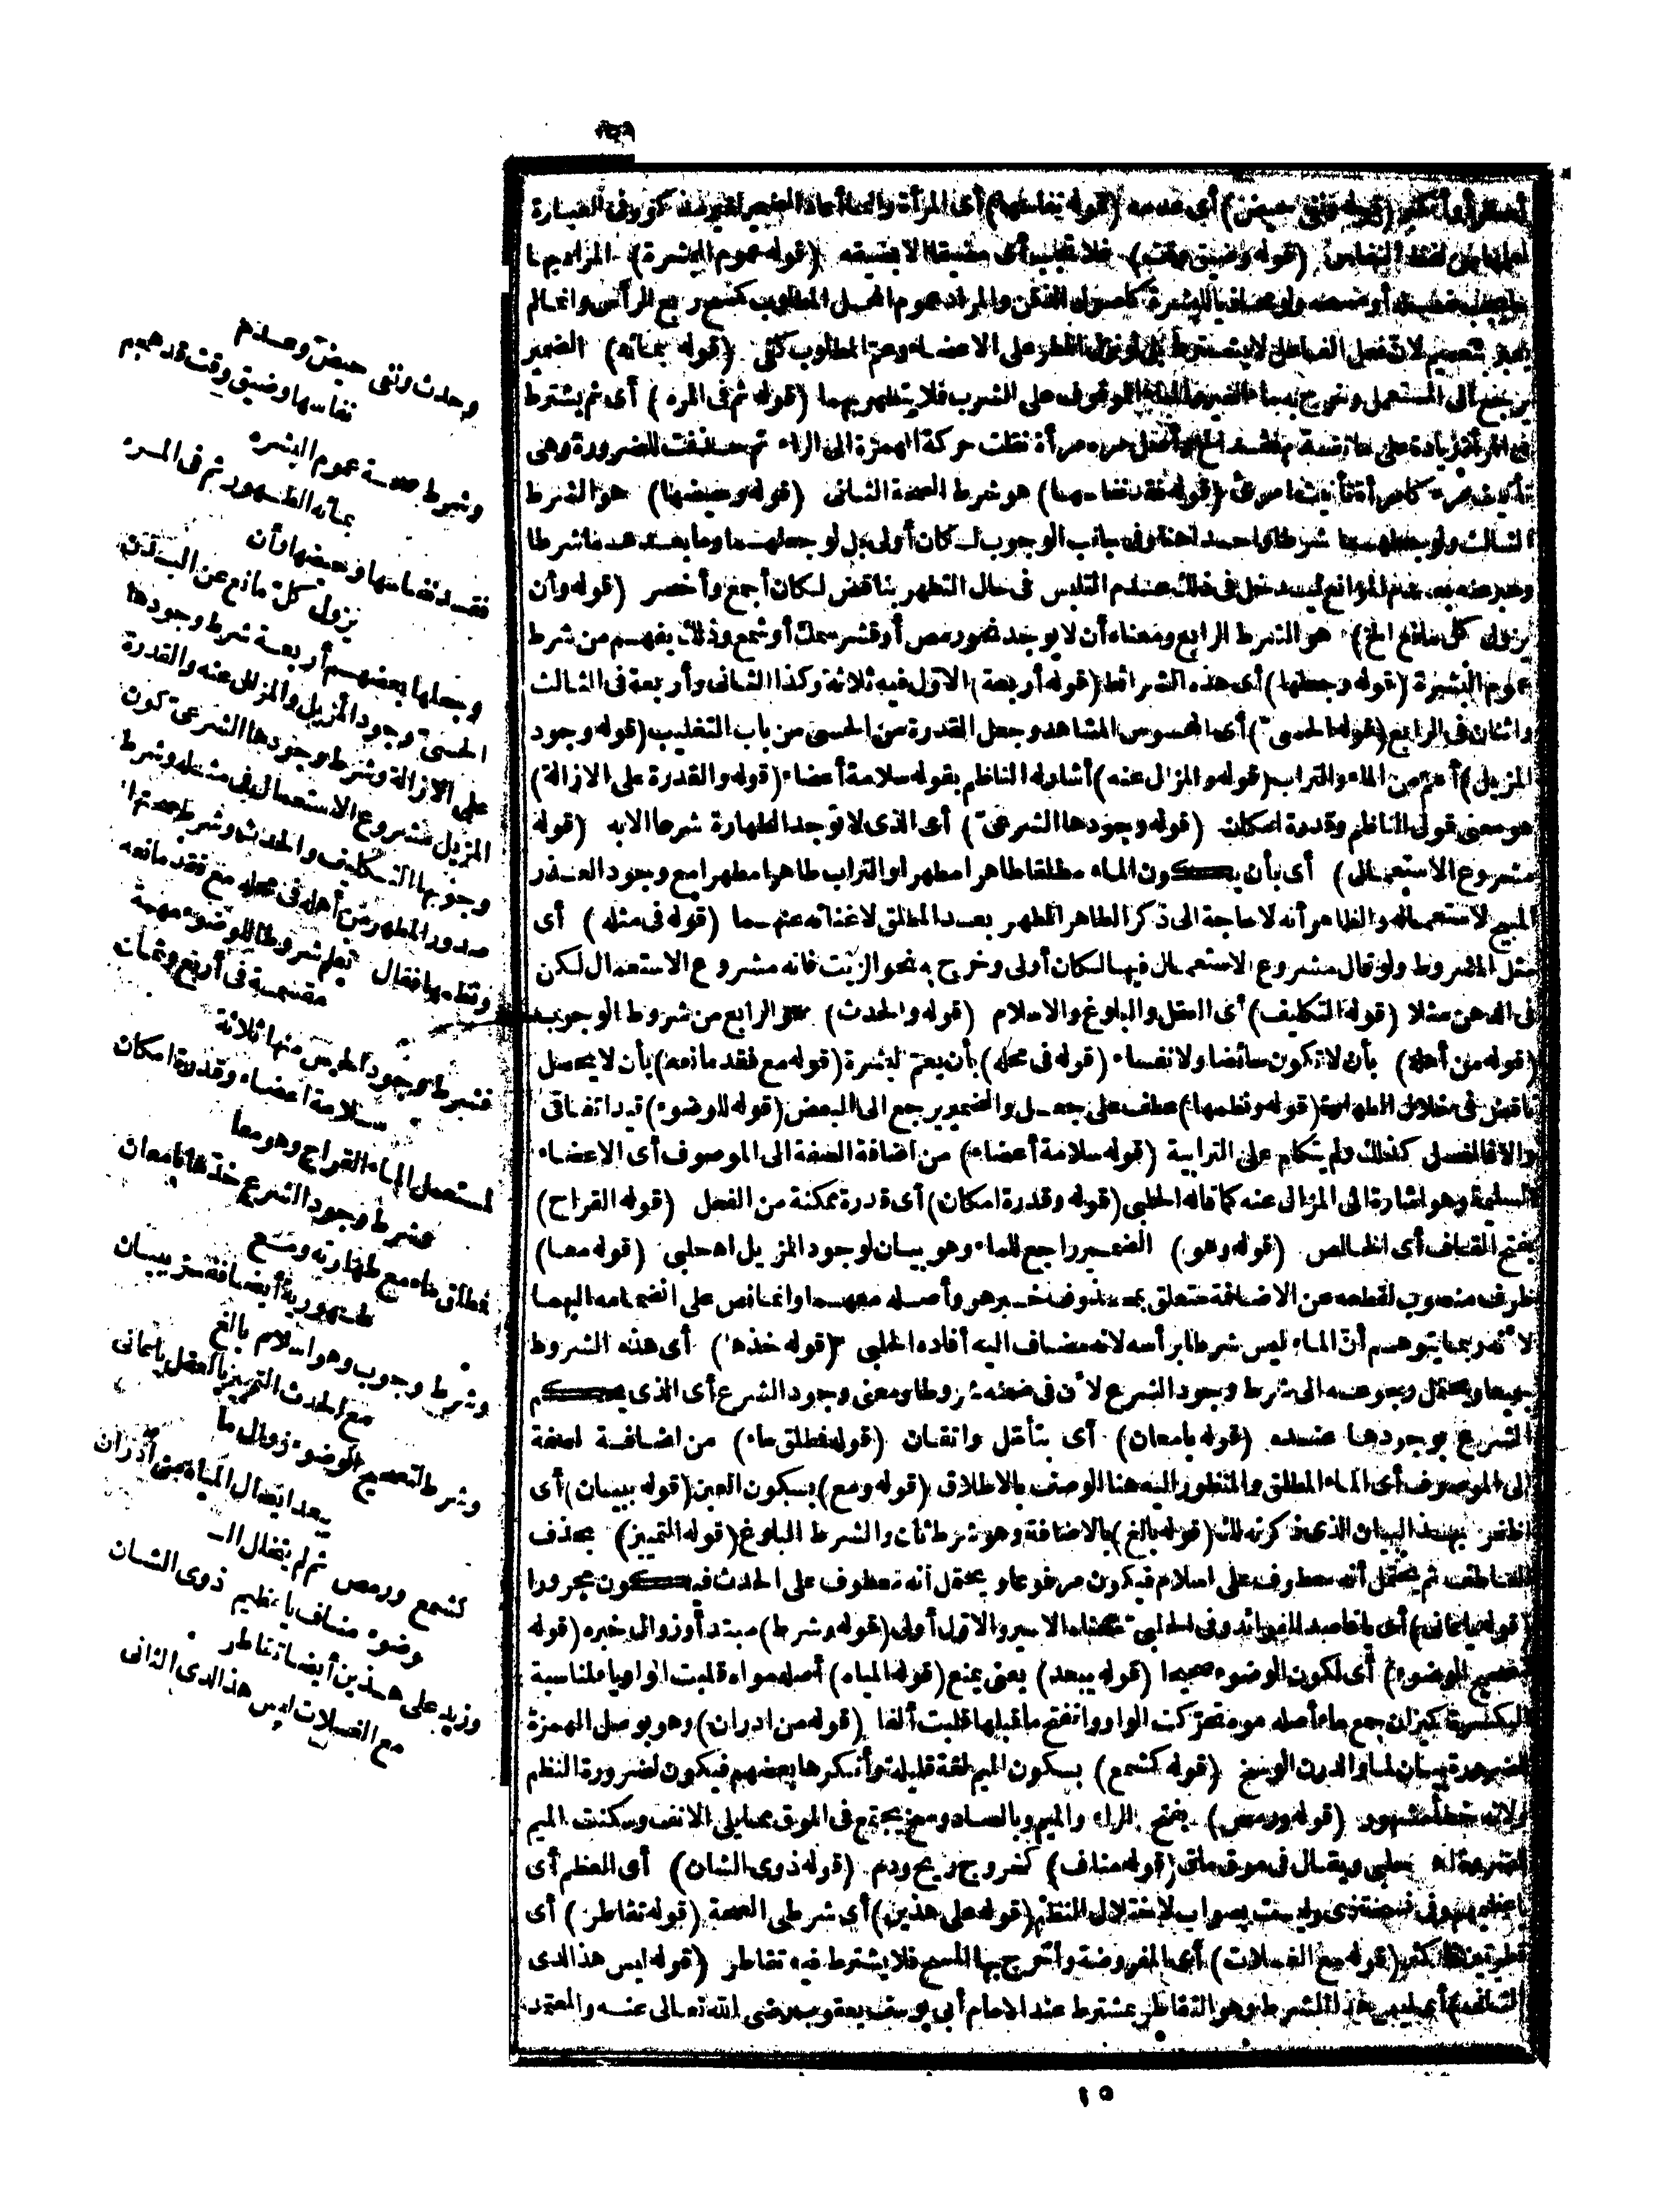 (قوله ونفى حيض) أى عدمه (قوله نفاسها) أى المرأة وانما أعاد الضمير لغير مذكور فى العبارة
(قوله وضيق وقت) أى مضيقا لا بضيقه (قوله عموم البشرة) المراد بها
ما يجب غسله أو مسحه والمراد عموم المحل المطلوب كمسح ربع الرأس وانما لم
يعبر بتعميم لان فعل الفاعل لا يشترط بل لو نزل المطر على الاعضاء وعم المطلوب كفى (قوله بمائه) الضمير
يرجع الى المستعمل فلا يتطهر بهما (قوله ثم فى المره) أى ثم يشترط
فى المرأة زيادة على ما نقلت حركة الهمزة الى الراء ثم حذفت للضرورة وهى
تأنيث مرء كامرأة تأنيث امرئ (قوله فقد نفاسها) هو شرط الصحة الثانى (قوله وحيضها) هو الشرط
الثالث ولو جعلهما شرطا واحدا هنا وفى جانب الوجوب لكان أولى بل لو جعلهما وما بعدهما شرطا
وعبر عنه بعدم الموانع ليدخل فى ذلك عدم التلبس فى حال التطهر بناقض لكان أجمع وأخصر (قوله وأن
يزول كل مانع الخ) هو الشرط الرابع ومعناه أن لا يوجد نحو رمص أو قشر سمك أو شمع وذلك يفهم من شرط
عموم البشرة (قوله وجعلها) أى هذه الشرائط (قوله أربعة) الاول فيه ثلاثة وكذا الثانى وأربعة فى الثالث
واثنان فى الرابع (قوله الحسى) أى المحسوس المشاهد وجعل القدرة من الحسى من باب التغليب (قوله وجود
المزيل) أعم من الماء والتراب (قوله والمزال عنه) أشار له الناظم بقوله سلامة أعضاء (قوله والقدرة على الازالة)
هو معنى قول الناظم وقدرة امكان (قوله وجودها الشرعى) أى الذى لا توجد الطهارة شرعا الا به (قوله
مشروع الاستعمال) أى بأن يكون الماء مطلقا طاهرا مطهرا والتراب طاهرا مطهرا مع وجود العذر
المبيح لاستعماله والظاهر أنه لا حاجة الى ذكر الطاهر المطهر بعد المطلق لاغنائه عنهما (قوله فى مثله) أى
مثل المشروط ولو قال مشروع الاستعمال فيها لكان أولى وخرج به نحو الزيت فانه مشروع الاستعمال لكن
فى الدهن مثلا (قوله التكليف) أى العقل والبلوغ والاسلام (قوله والحدث) هو الرابع من شروط الوجوب
(قوله من أهله) بأن لا تكون حائضا ولا نفساء (قوله فى محله) بأن يعم البشرة (قوله مع فقد مانعه) بأن لا يحصل
ناقض فى خلال الطهارة (قوله ونظمها) عطف على جعل والضمير يرجع الى البعض (قوله للوضوء) قيد اتفاقى
والا فالغسل كذلك ولم يتكلم على الترابية (قوله سلامة أعضاء) من اضافة الصفة الى الموصوف أى الاعضاء
السليمة وهو اشارة الى المزال عنه كما قاله الحلبى (قوله وقدرة امكان) أى قدرة ممكنة من الفعل (قوله القراح)
بفتح القاف أى الخالص (قوله وهو) الضمير راجع للماء وهو بيان لوجود المزيل اه حلبى (قوله معا)
ظرف منصوب لقطعه عن الاضافة متعلق بمحذوف خبر هو وأصله معهما وانما نص على انضمامه اليهما
لانه ربما يتوهم أن الماء ليس شرطا برأسه لانه مضاف اليه أفاده الحلبى (قوله خذها) أى هذه الشروط
جميعا ويحتمل رجوعه الى شرط وجود الشرع لان فى ضمنه شروطا ومعنى وجود الشرع أى الذى يحكم
الشرع بوجودها عنده (قوله بامعان) أى بتأمل واتقان (قوله فمطلق ماء) من اضافة الصفة
الى الموصوف أى الماء المطلق والمنظور اليه هنا الوصف بالاطلاق (قوله ومع) بسكون العين (قوله ببيان) أى
اظفر بهذا البيان الذى ذكرته لك (قوله بالغ) بالاضافة وهو شرط ثان والشرط البلوغ (قوله التمييز) بحذف
العاطف ثم يحتمل أنه معطوف على اسلام فيكون مرفوعا ويحتمل أنه معطوف على الحدث فيكون مجرورا
(قوله يا عانى) أى يا قاصد الفوائد وفى الحلبى معناه الاسير والاول أولى (قوله وشرط) مبتدأ وزوال خبره (قوله
لتصحيح الوضوء) أى لكون الوضوء صحيحا (قوله يبعد) يعنى يمنع (قوله المياه) أصله مواه قلبت الواو ياء لمناسبة
الكسرة كميزان جمع ماء أصله موه تحركت الواو وانفتح ما قبلها قلبت ألفا (قوله من ادران) وهو بوصل الهمزة
للضرورة بيان لما والدرن الوسخ (قوله كشمع) بسكون الميم لغة قليلة وأنكرها بعضهم فيكون لضرورة النظم
ولانه خطأ مشهور (قوله ورمص) بفتح الراء والميم وبالصاد وسخ يجتمع فى الموق مما يلى الانف وسكنت الميم
للضرورة اه حلبى ويقال فى موق ماق (قوله مناف) كخروج ريح ودم (قوله ذوى الشان) أى العظم أى
يا عظيمهم وفى نسخة ذى وليست بصواب لاختلال النظم (قوله على هذين) أى شرطى الصحة (قوله تقاطر) أى
قطرتين فأكثر (قوله مع الغسلات) أى المفروضة واخرج بها المسح فلا يشترط فيه تقاطر (قوله ليس هذا لدى
الثانى) أى ليس هذا الشرط وهو التقاطر بمشترط عند الامام أبى يوسف يعقوب رضى الله تعالى عنه والمعتمد
١٥
وحدث ونفى حيض وعدم
نفاسها وضيق وقت قد هجم
وشرط صحة عموم البشره
بمائه الطهور ثم فى المره
فقد نفاسها وحيضها وأن
يزول كل مانع عن البدن
وجعلها بعضهم أربعة شرط وجودها
الحسى وجود المزيل والمزال عنه والقدرة
على الازالة وشرط وجودها الشرعى كون
المزيل مشروع الاستعمال فى مثله وشرط
وجوبها التكليف والحدث وشرط صحتها
صدور المطهر من أهله فى محله مع فقد مانعه
ونظمها فقال تعلم شروطا للوضوء مهمة
مقسمة فى أربع وثمان
فشرط وجود الحس منها ثلاثة
سلامة اعضاء وقدرة امكان
لمستعمل الماء القراح وهو معا
وشرط وجود الشرع خذها بامعان
فمطلق ماء مع طهارته ومع
طهورية أيضا فقد ببيان
وشرط وجوب وهو اسلام بالغ
مع الحدث التمييز بالعقل يا عانى
وشرط لتصحيح الوضوء زوال ما
يبعد ايصال المياه من أدران
كشمع ورمص ثم لم يتخلل الـ
وضوء مناف يا عظيم ذوى الشان
وزيد على هذين أيضا تقاطر
مع الغسلات ليس هذا لدى الثانى